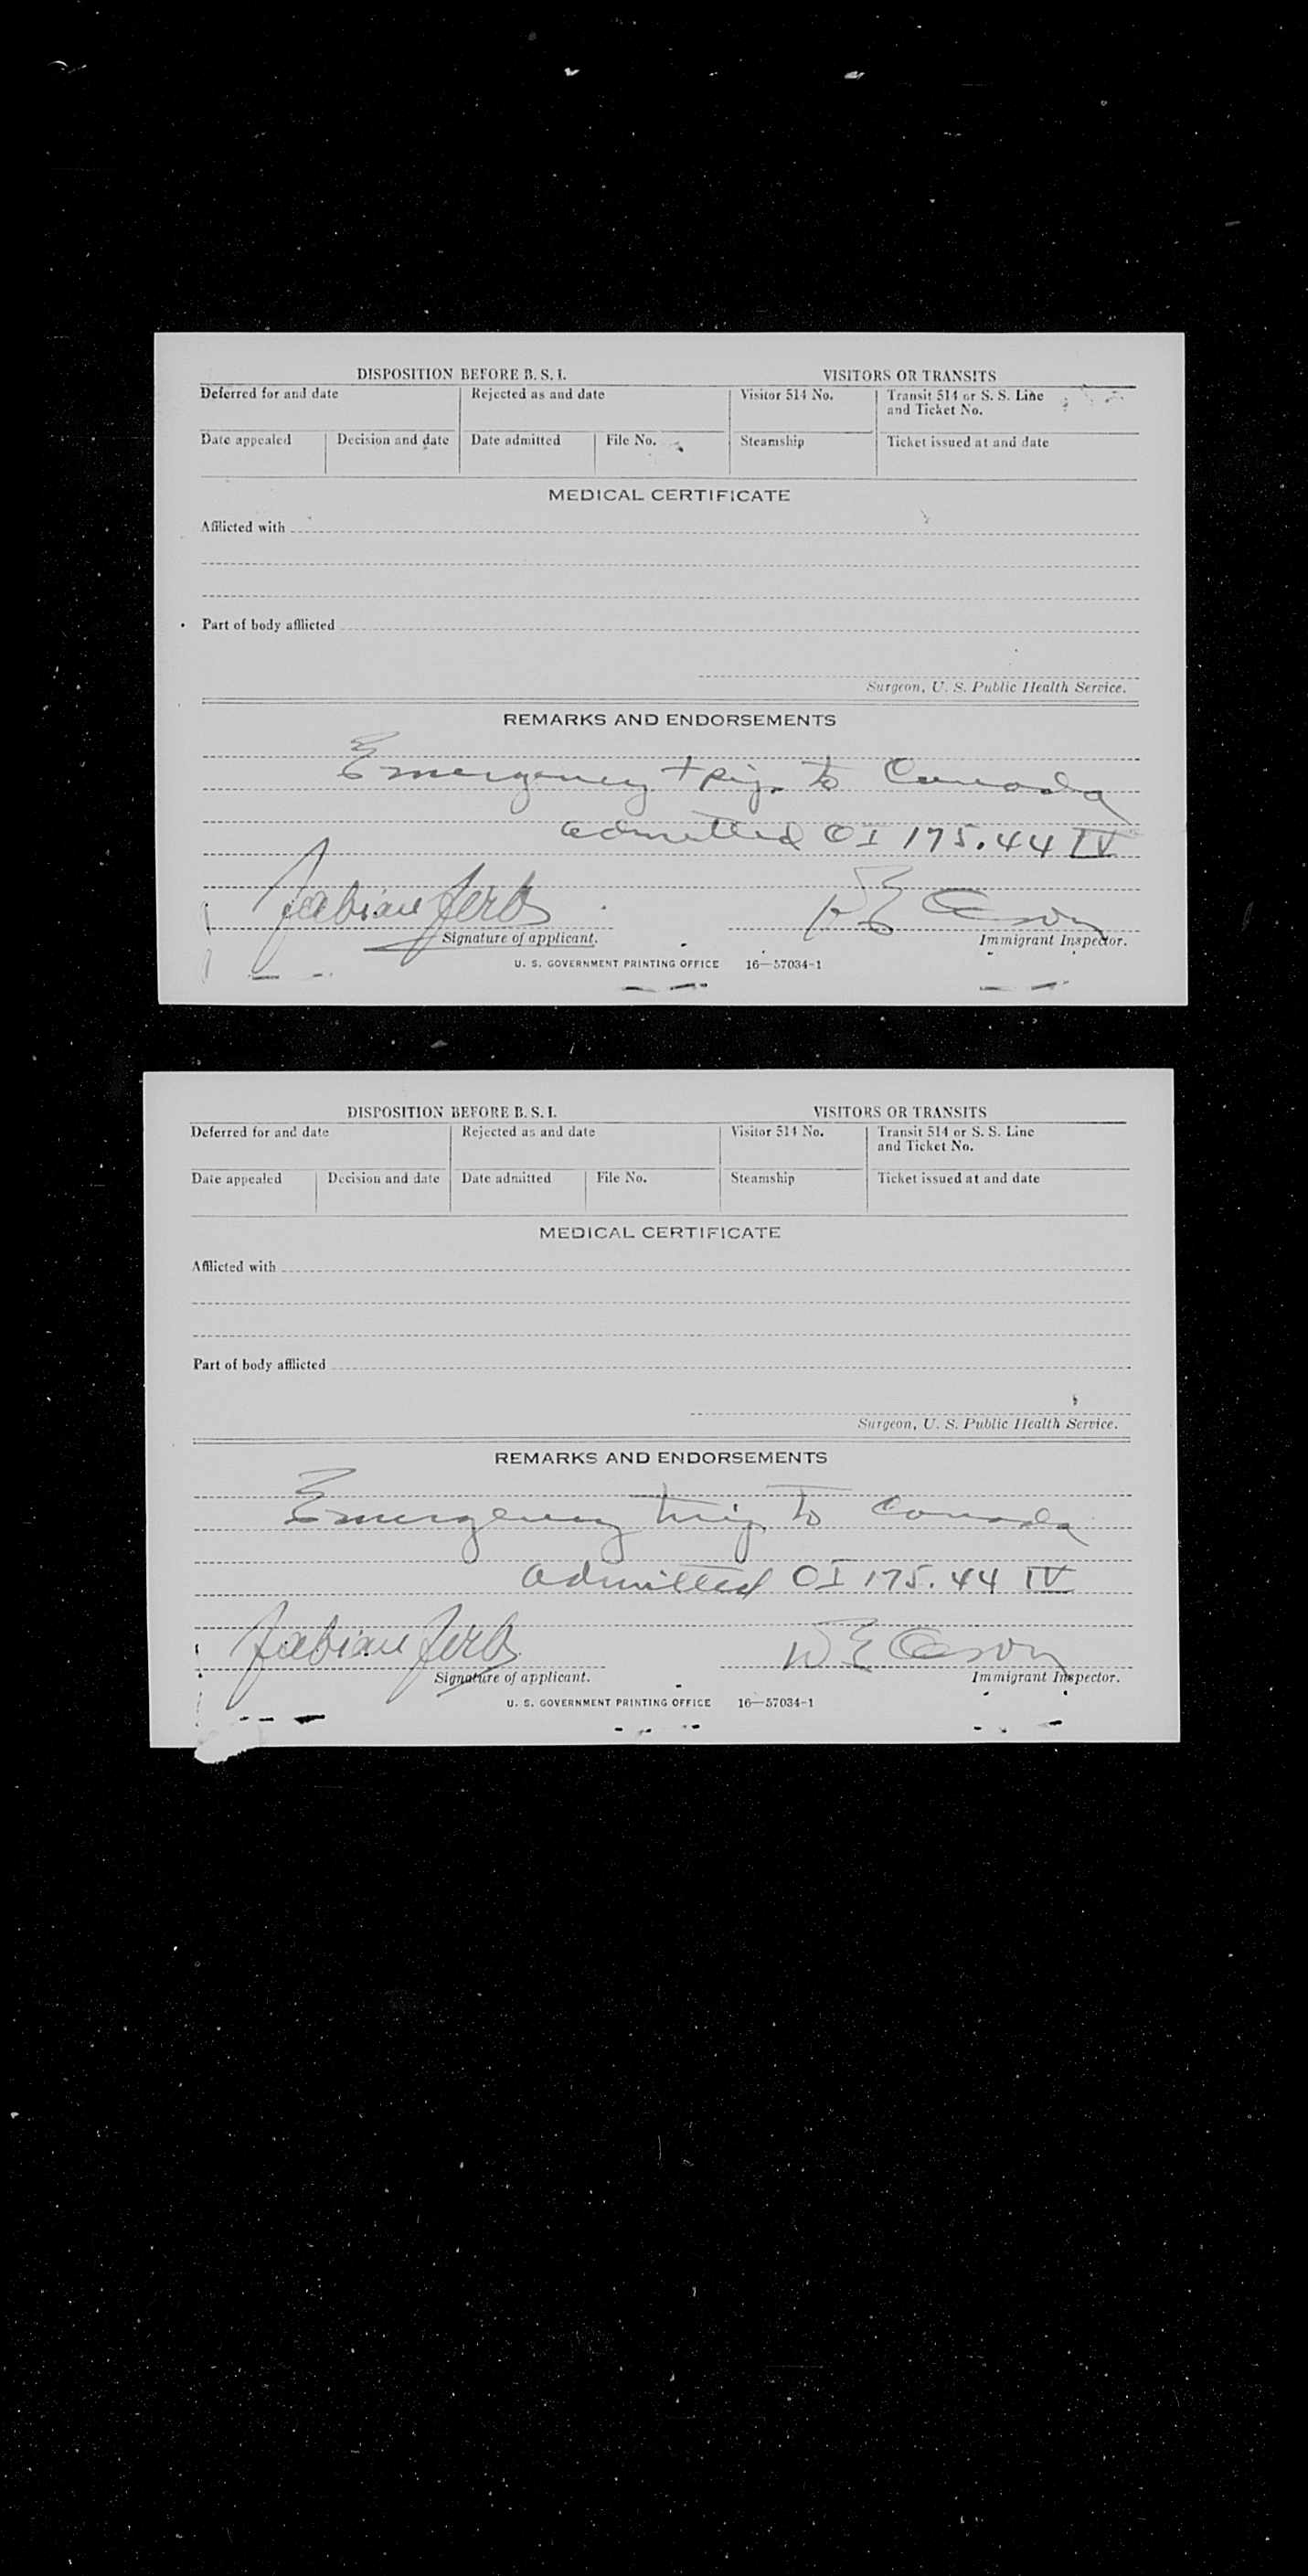 DISPOSITION BEFORE B. S. I. VISITORS OR TRANSITS
Deferred for and date Rejected as and date Visitor 514 No. Transit 514 or S. S. Line and Ticket No.
Date appealed Decision and date Date admitted File No. Steamship Ticket issued at and date
MEDICAL CERTIFICATE
Afflicted with
Part of body afflicted
Surgeon, U. S. Public Health Service.
REMARKS AND ENDORSEMENTS
Emergency trip to Canada
admitted OI 175.44 IV
Fabian
Signature of applicant. Immigrant Inspector.
U. S. GOVERNMENT PRINTING OFFICE 16—57034-1
DISPOSITION BEFORE B. S. I. VISITORS OR TRANSITS
Deferred for and date Rejected as and date Visitor 514 No. Transit 514 or S. S. Line and Ticket No.
Date appealed Decision and date Date admitted File No. Steamship Ticket issued at and date
MEDICAL CERTIFICATE
Afflicted with
Part of body afflicted
Surgeon, U. S. Public Health Service.
REMARKS AND ENDORSEMENTS
Emergency trip to Canada
admitted OI 175.44 IV
Fabian
Signature of applicant. Immigrant Inspector.
U. S. GOVERNMENT PRINTING OFFICE 16—57034-1